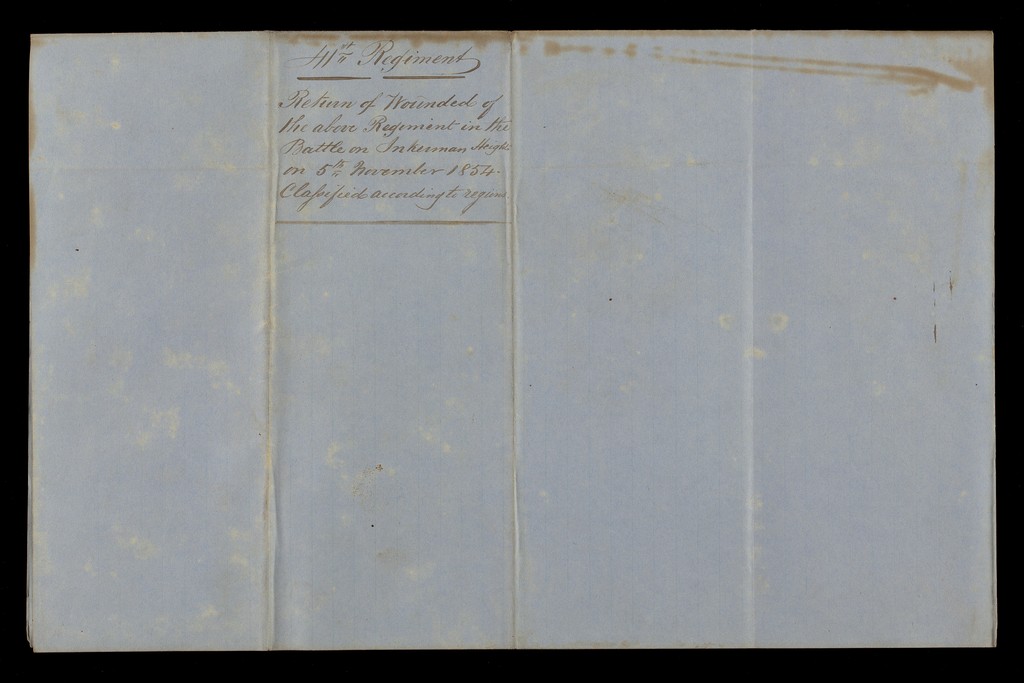 41st Regiment
Return of Wounded of
the above Regiment in the
Battle on Inkerman Heights
on 5th November 1854.
Classified according to regions.